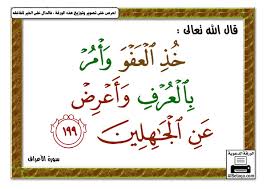 احرص على تصوير وتوزيع هذه الورقة ، فالدال على الخير كفاعله
قال الله تعالى :
خُذِ ٱلۡعَفۡوَ وَأۡمُرۡ
بِٱلۡعُرۡفِ وَأَعۡرِضۡ
عَنِ ٱلۡجَٰهِلِينَ ١٩٩
سورة الأعراف
الورقة الدعوية